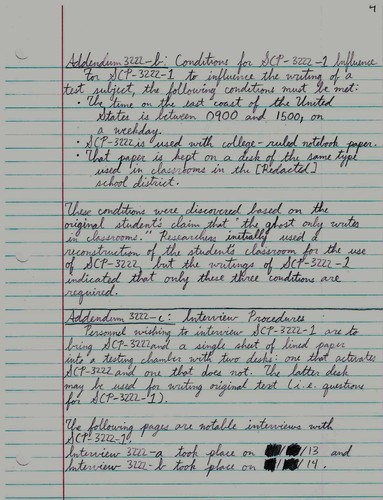 4
Addendum 3222-b: Conditions for SCP-3222-1 Influence
For SCP-3222-1 to influence the writing of a
test subject, the following conditions must be met:
• The time on the east coast of the United
States is between 0900 and 1500, on
a weekday.
• SCP-3222 is used with college-ruled notebook paper.
• That paper is kept on a desk of the same type
used in classrooms in the [Redacted]
school district.
These conditions were discovered based on the
original student's claim that "the ghost only writes
in classrooms." Researchers initially used a
reconstruction of the student's classroom for the use
of SCP-3222, but the writings of SCP-3222-1
indicated that only these three conditions are
required.
Addendum 3222-c: Interview Procedures
Personnel wishing to interview SCP-3222-1 are to
bring SCP-3222 and a single sheet of lined paper
into a testing chamber with two desks: one that activates
SCP-3222 and one that does not. The latter desk
may be used for writing original text (i.e. questions
for SCP-3222-1).
The following pages are notable interviews with
SCP-3222-1.
Interview 3222-a took place on / /13 and
Interview 3222-b took place on / /14.